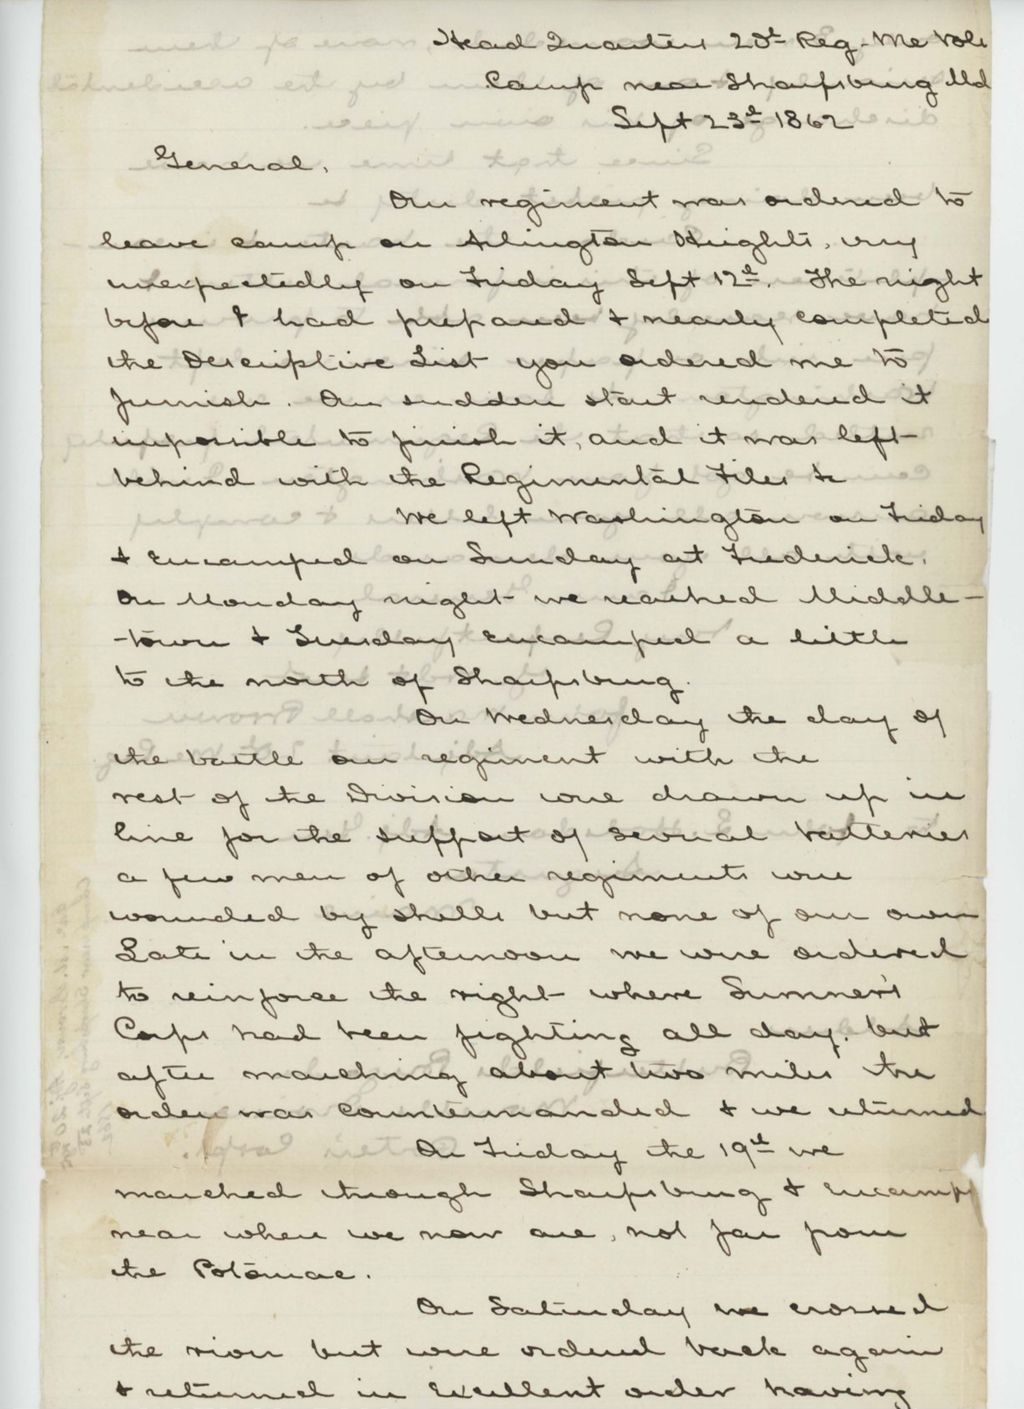 Head Quarters 20t Reg. Me Vols
Camp near Sharpsburg Md
Sept 23d 1862
General,
Our regiment was ordered to
leave camp on Arlington Heights, very
unexpectedly on Friday Sept 12th. The night
before I had prepared & nearly completed
the Descriptive List you ordered me to
furnish. Our sudden start rendered it
impossible to finish it, and it was left
behind with the Regimental Files &c
We left Washington on Friday
& encamped on Sunday at Frederick.
On Monday night we reached Middle-
-town & Tuesday encamped a little
to the north of Sharpsburg.
On Wednesday the day of
the battle our regiment with the
rest of the Division were drawn up in
line for the support of several batteries
a few men of other regiments were
wounded by shells but none of our own
Late in the afternoon we were ordered
to reinforce the right where Sumner's
Corps had been fighting all day, but
after marching about two miles the
order was countermanded & we returned
On Friday the 19th we
marched through Sharpsburg & encamped
near where we now are, not far from
the Potomac.
On Saturday we crossed
the river but were ordered back again
& returned in excellent order having